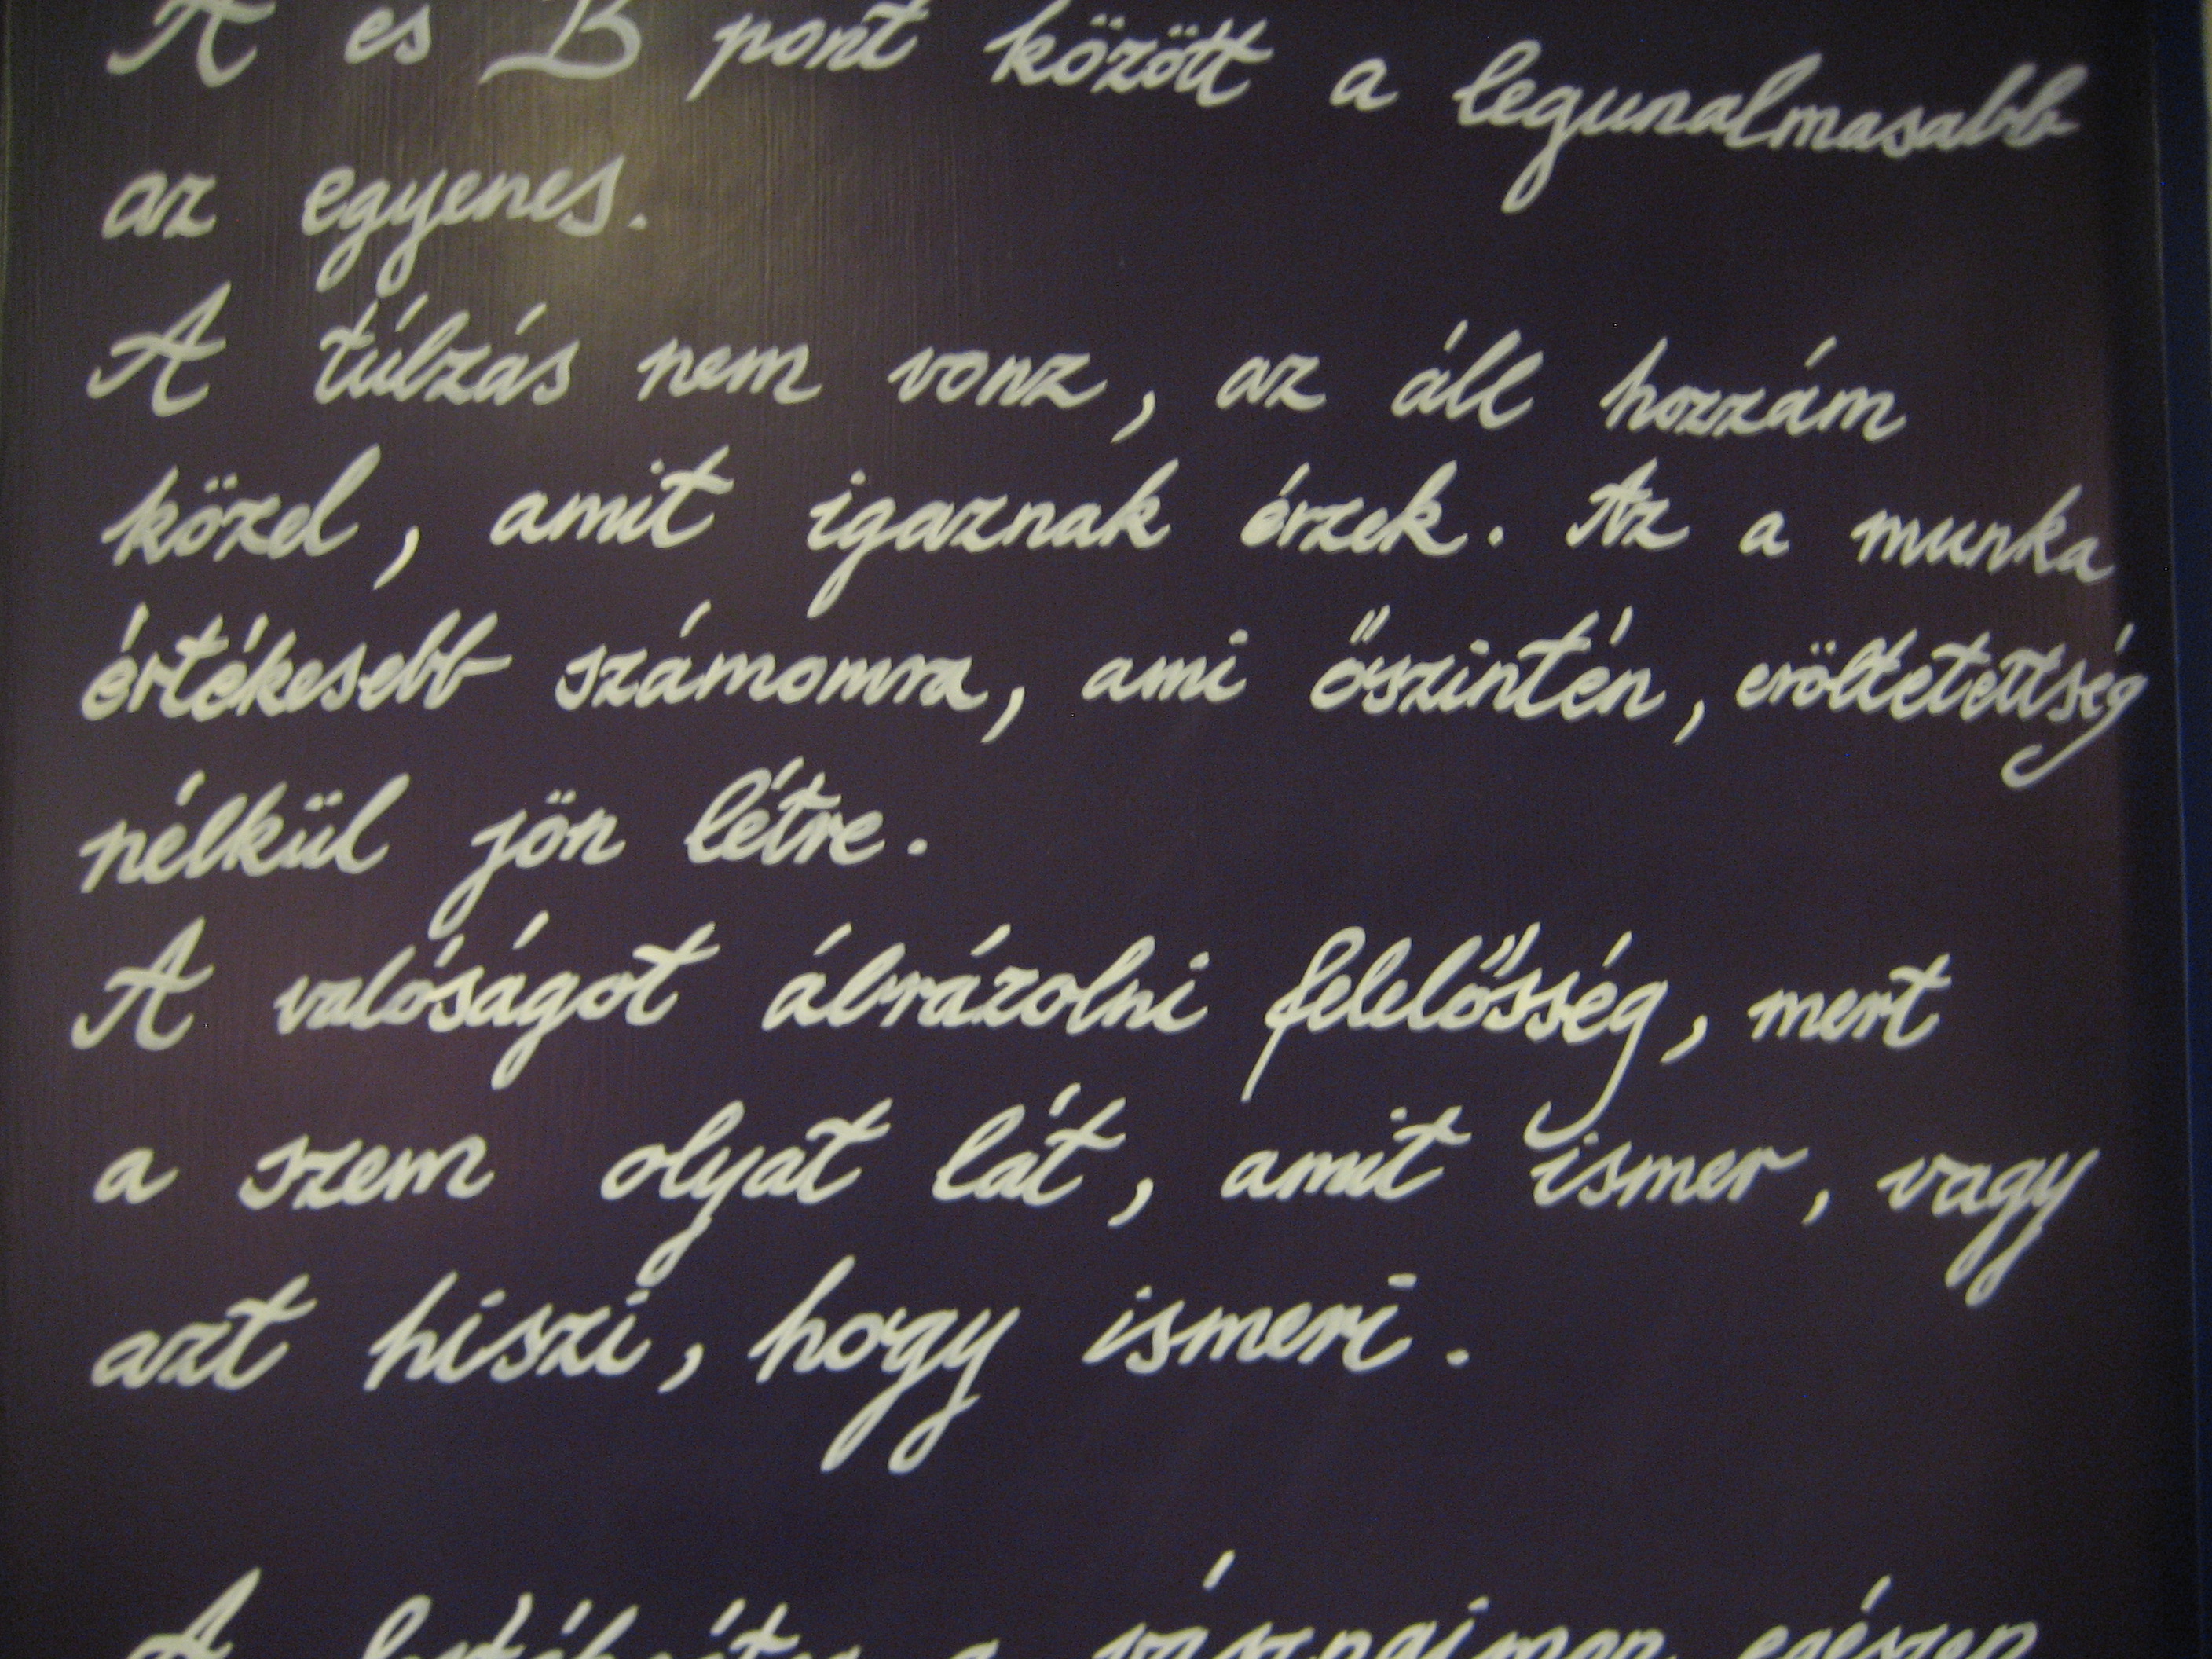 A és B pont között a legunalmasabb
az egyenes.
A túlzás nem vonz, az áll hozzám
közel, amit igaznak érzek. Az a munka
értékesebb számomra, ami őszintén, eröltetettség
nélkül jön létre.
A valóságot ábrázolni felelősség, mert
a szem olyat lát, amit ismer, vagy
azt hiszi, hogy ismeri.
A a vásznaimon egészen